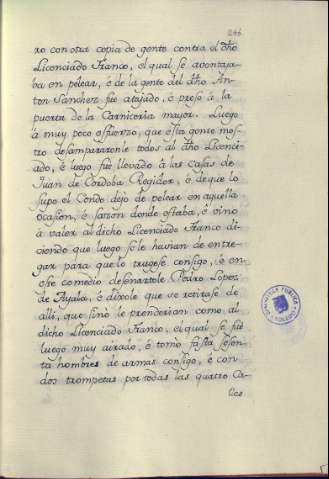 246
ro con otra copia de gente contra el dho
Licenciado Franco, el qual se aventaja-
ba en pelear, é de la gente del dho An-
ton Sanchez fué atajado, é preso á la
puerta de la Carniceria mayor. Luego
á muy poco esfuerzo, que esta gente mos-
tro desampararonle todos al dho Licenci-
ado, é luego fué llevado á las casas de
Juan de Cordoba Regidor, é de que lo
supo el Conde dejo de pelear en aquella
ocasion, é sazon donde estaba, é vino
á valer al dicho Licenciado Franco di-
ciendo que luego se le havian de entre-
gar para que lo trugese consigo, é en
ese comedio desenartole Pedro Lopez
de Ayala, é dixole que se retirase de
alli, que sinó le prenderian como al
dicho Licenciado Franco, el qual se fué
luego muy airado, é tomó fasta sesen-
ta hombres de armas consigo, é con
dos trompetas por todas las quatro Ca-
lles
BIBLIOTECA PUBLICA
TOLEDO